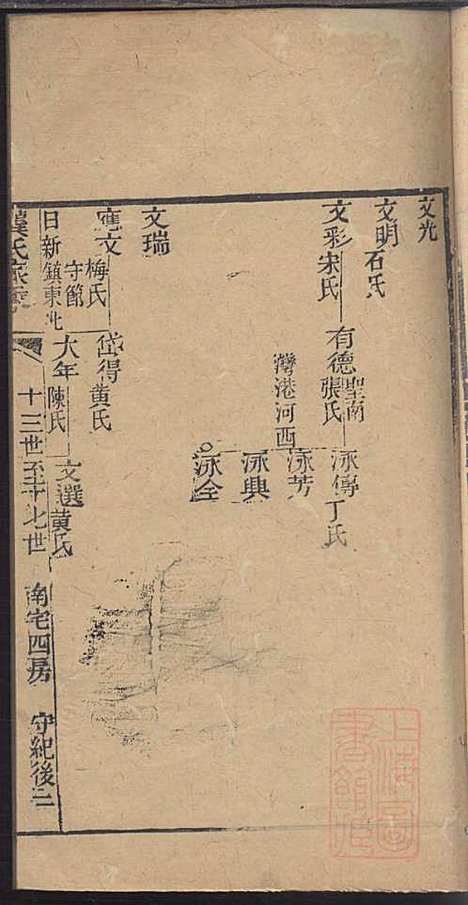 文光
文明 石氏
文彩 宋氏 有德 聖南 張氏 泳傳 丁氏
泳芳
灣港河西
泳興
泳全
文瑞
應文 梅氏 守節 岱得 黄氏
日新 鎮東北 大年 陳氏 文選 黄氏
氏家
十三世至十七世 南宅四房 守紀後二
上海圖書館